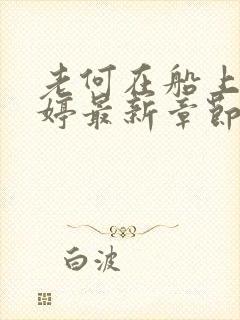 老何在船上
婷最新章节
白波